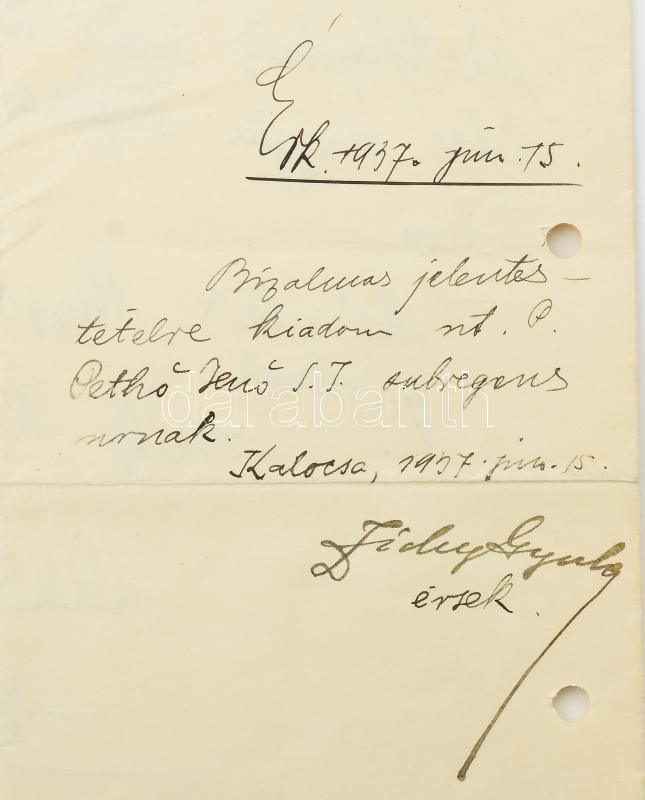 Érk. 1937. jún. 15.
Bizalmas jelentés-
tételre kiadom nt. P.
Pethő Jenő S.J. subregens
úrnak.
Kalocsa, 1937. jún. 15.
Zichy Gyula
érsek.
darabanth